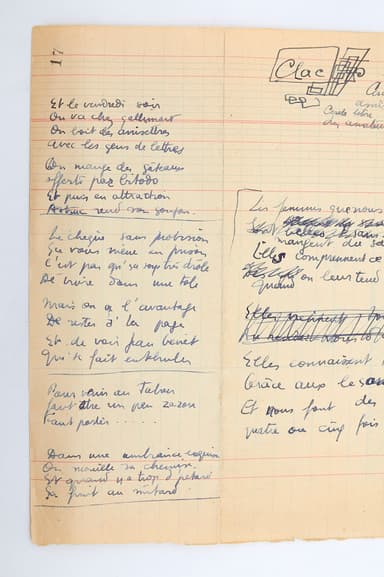 17
Et le vendredi soir
On va chez gallimard
On boit des anisettes
Avec les gens de lettres
On mange des gâteaux
offerts par bitodo
Et puis en attraction
Le chèque sans provision
Ça vous mène en prison
C'est pas qu'ça soye très drôle
De vivre dans une tôle
Mais on a l'avantage
De rester à la page
Et de voir Jean benet
Qui s'fait
Pour venir au Tabou
faut être un peu zazou
Faut porter ......
Dans une ambiance coquine
On mouille sa chemise
Et quand y a trop d'pétard
Ça finit au mitard.
Clac
Cercle libre
des amateurs
Les femmes que nous
Sont belles sans
mangent du
Elles comprennent ce
Quand on leur tend
Elles connaissent
Grâce aux
Et nous font des
quatre ou cinq fois